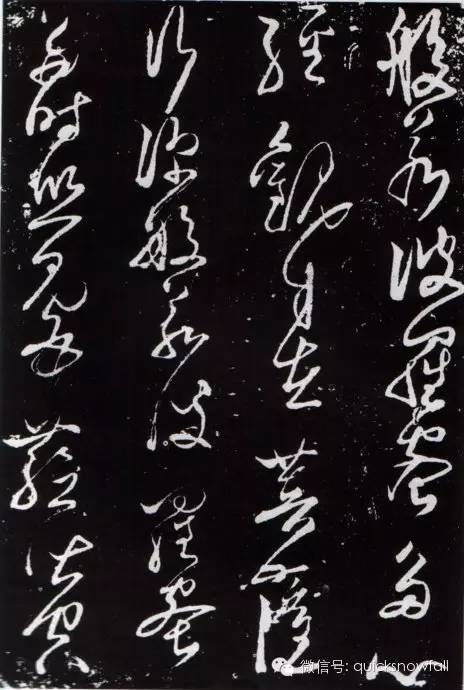 般若波羅蜜多心
經觀自在菩薩
行深般若波羅蜜
多時照見五蘊皆空
微信号: quicksnowfall